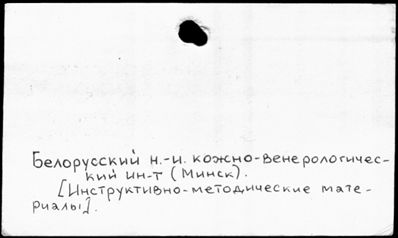 Белорусский н.-и. кожно-венерологичес-
кий ин-т (Минск).
[Инструктивно-методические мате-
риалы].